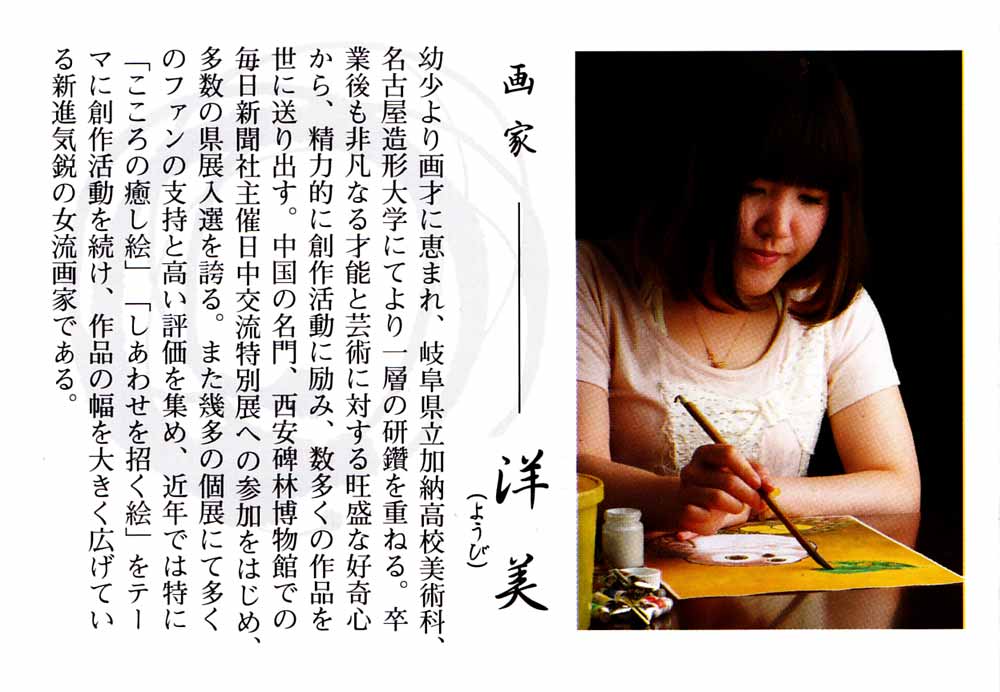 画家
洋美
(ようび)
幼少より画才に恵まれ、岐阜県立加納高校美術科、
名古屋造形大学にてより一層の研鑽を重ねる。卒
業後も非凡なる才能と芸術に対する旺盛な好奇心
から、精力的に創作活動に励み、数多くの作品を
世に送り出す。中国の名門、西安碑林博物館での
毎日新聞社主催日中交流特別展への参加をはじめ、
多数の県展入選を誇る。また幾多の個展にて多く
のファンの支持と高い評価を集め、近年では特に
「こころの癒し絵」「しあわせを招く絵」をテー
マに創作活動を続け、作品の幅を大きく広げてい
る新進気鋭の女流画家である。